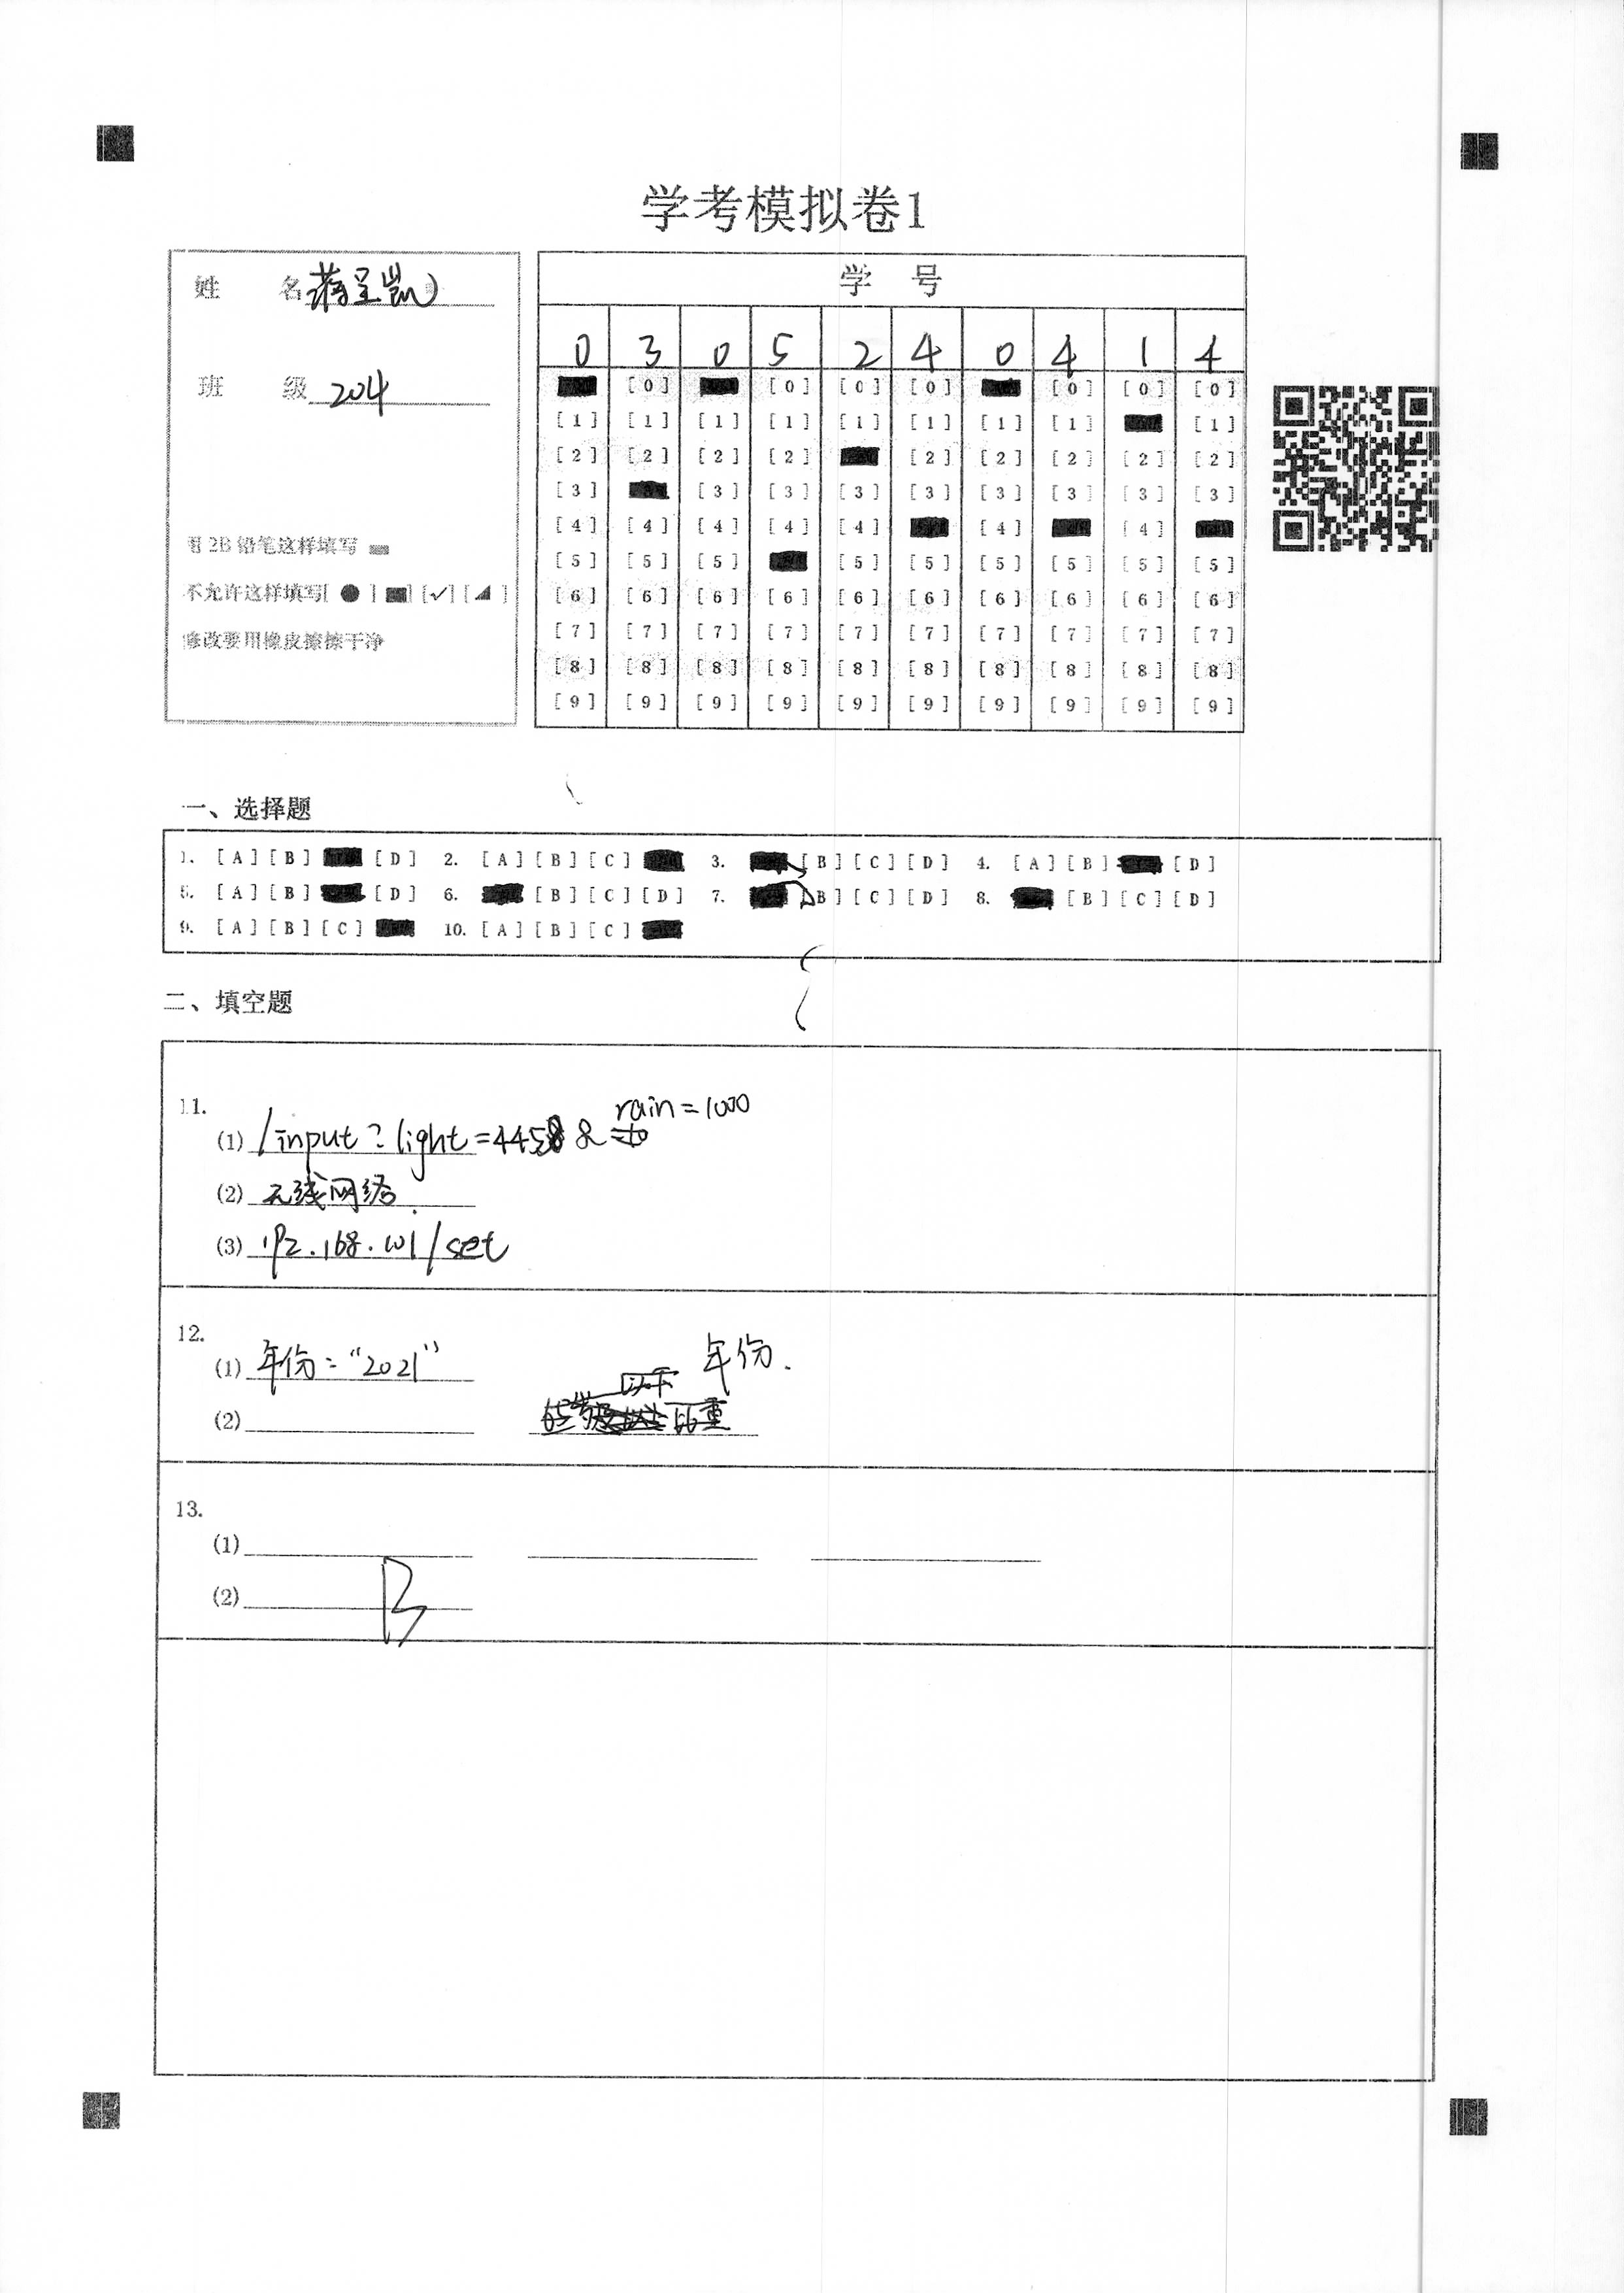 学考模拟卷1
姓 名 蒋呈凯
班 级 204
用 2B 铅笔这样填写
不允许这样填写[ ● ] [✓] [ ◢ ]
修改要用橡皮擦擦干净
学 号
0 3 0 5 2 4 0 4 1 4
[0] [0] [0] [0] [0] [0] [0]
[1] [1] [1] [1] [1] [1] [1] [1] [1]
[2] [2] [2] [2] [2] [2] [2] [2] [2]
[3] [3] [3] [3] [3] [3] [3] [3] [3]
[4] [4] [4] [4] [4] [4] [4]
[5] [5] [5] [5] [5] [5] [5] [5] [5]
[6] [6] [6] [6] [6] [6] [6] [6] [6] [6]
[7] [7] [7] [7] [7] [7] [7] [7] [7] [7]
[8] [8] [8] [8] [8] [8] [8] [8] [8] [8]
[9] [9] [9] [9] [9] [9] [9] [9] [9] [9]
一、选择题
1. [A] [B] [D] 2. [A] [B] [C] 3. [B] [C] [D] 4. [A] [B] [D]
5. [A] [B] [D] 6. [B] [C] [D] 7. [B] [C] [D] 8. [B] [C] [D]
9. [A] [B] [C] 10. [A] [B] [C]
二、填空题
11.
(1) /input?light=4458&rain=1000
(2) 无线网络
(3) 192.168.101/set
12.
(1) 年份="2021"
(2) 年份.
13.
(1)
(2) B